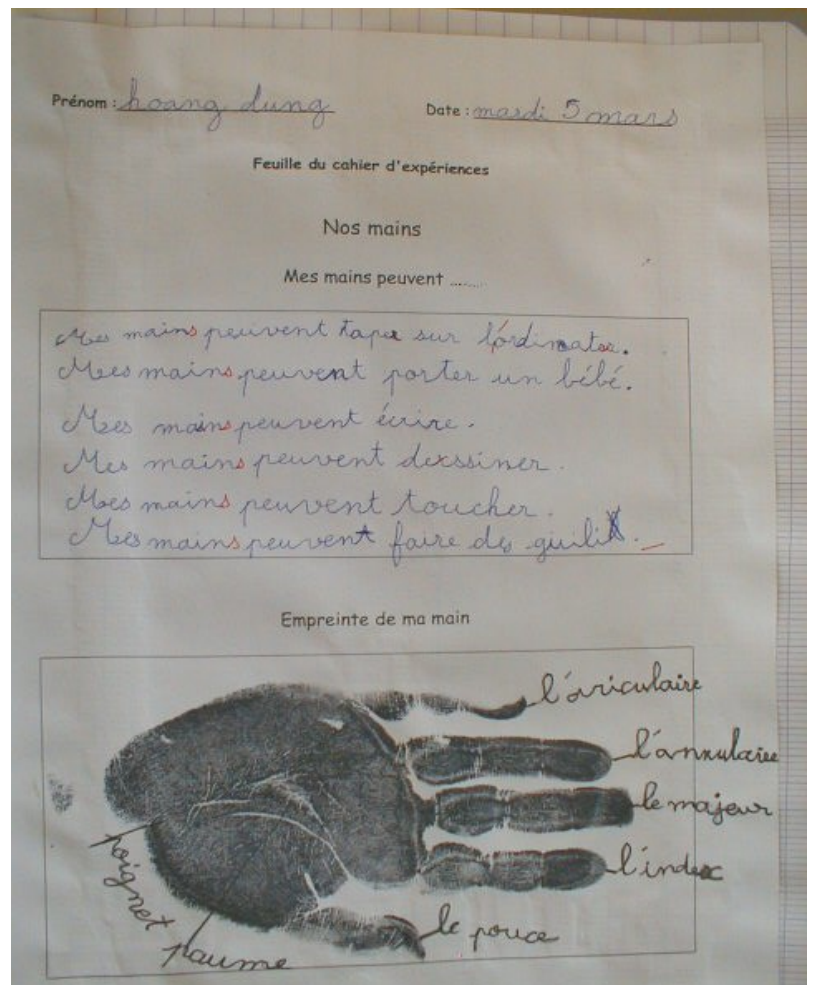 Prénom : hoang dung
Date : mardi 5 mars
Feuille du cahier d'expériences
Nos mains
Mes mains peuvent ........
Mes mains peuvent taper sur l'ordinateur.
Mes mains peuvent porter un bébé.
Mes mains peuvent écrire.
Mes mains peuvent dessiner.
Mes mains peuvent toucher.
Mes mains peuvent faire des guili.
Empreinte de ma main
l'auriculaire
l'annulaire
le majeur
l'index
le pouce
poignet
paume